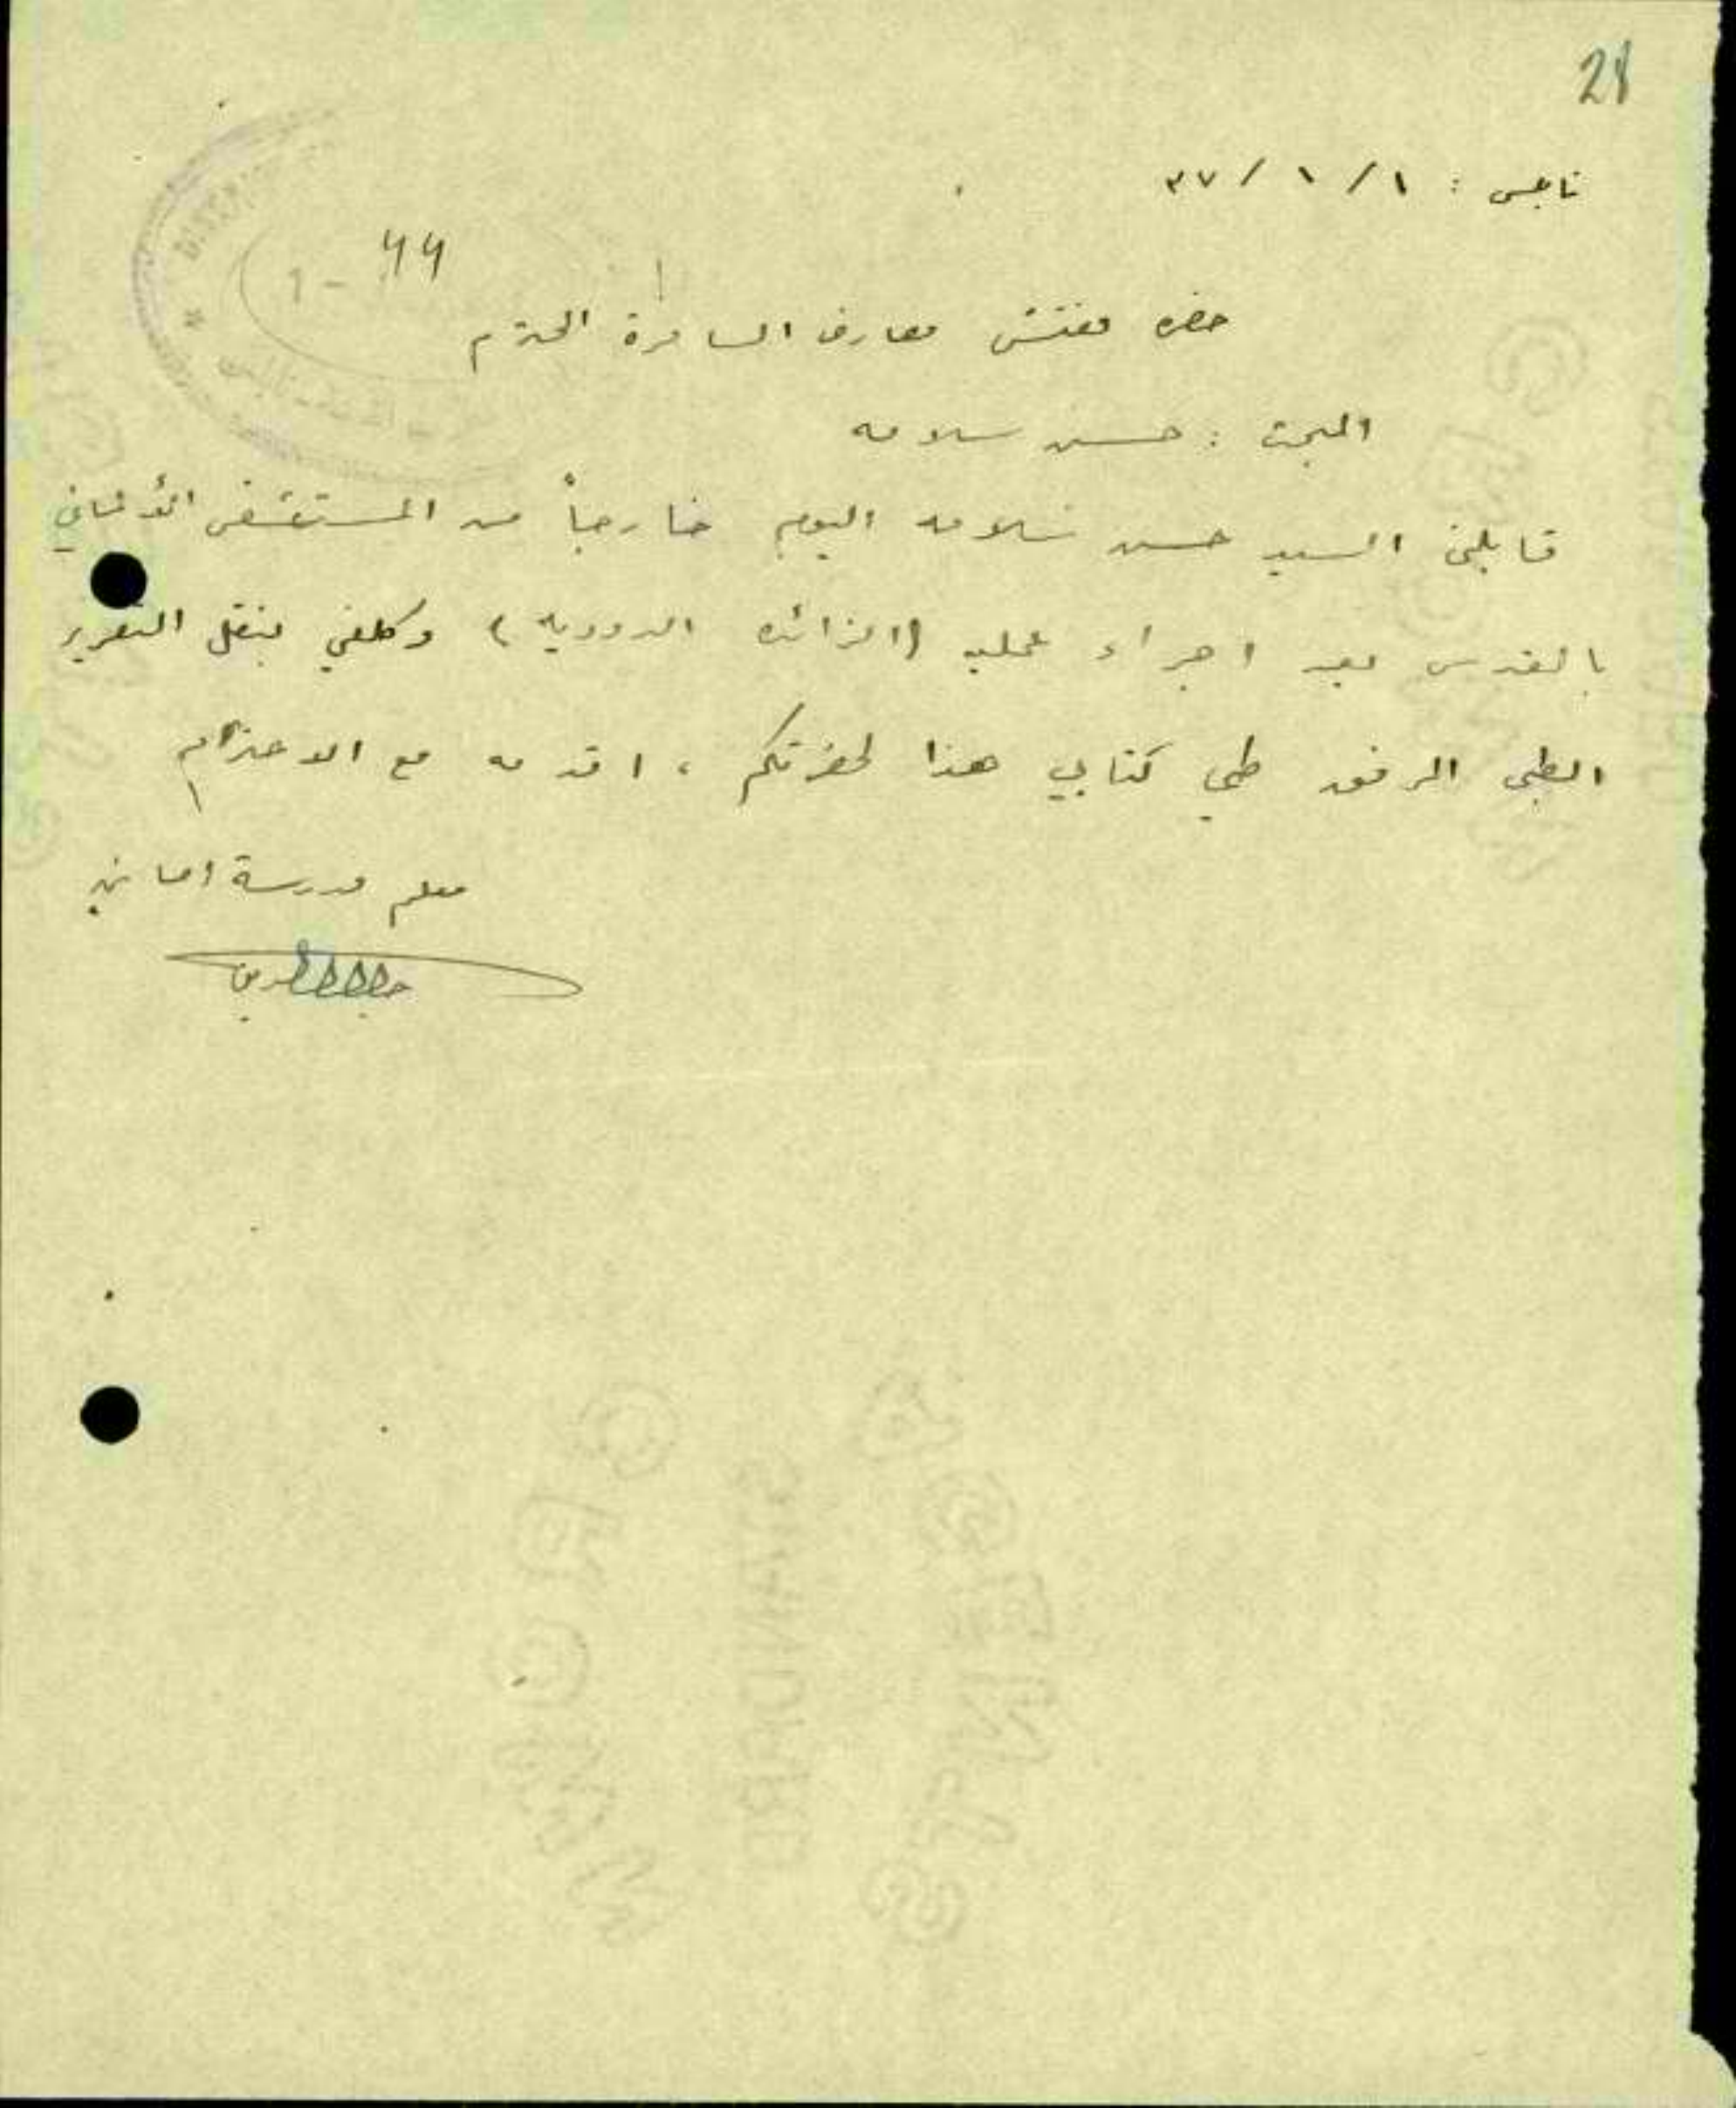 28
نابلس : ١ / ١ / ٣٧
1 - 44
حضرة مفتش معارف السامرة المحترم
المبحث : حسن سلامه
قابلني السيد حسن سلامه اليوم خارجاً من المستشفى الألماني
بالقدس بعد اجراء عملية (الزائدة الدودية) وكلفني بنقل التقرير
الطبي المرفق طي كتابي هذا لحضرتكم ، اقدمه مع الاحترام
معلم مدرسة اماتين